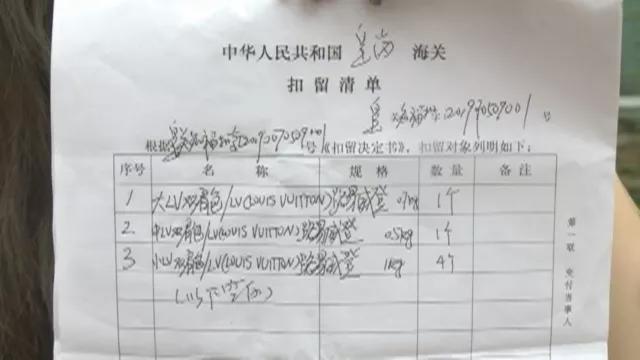 中华人民共和国 皇岗 海关
扣 留 清 单
皇 字[2019]0509001 号
根据皇 字[2019]0509001号《扣留决定书》，扣留对象列明如下：
序号 名 称 规 格 数 量 备 注
1 大LV双肩包/LV(LOUIS VUITTON)路易威登 kg 1个
2. 中LV双肩包/LV(LOUIS VUITTON)路易威登 0.5kg 1个
3 小LV双肩包/LV(LOUIS VUITTON)路易威登 1kg 4个
(以下空白)
第一联 交付当事人